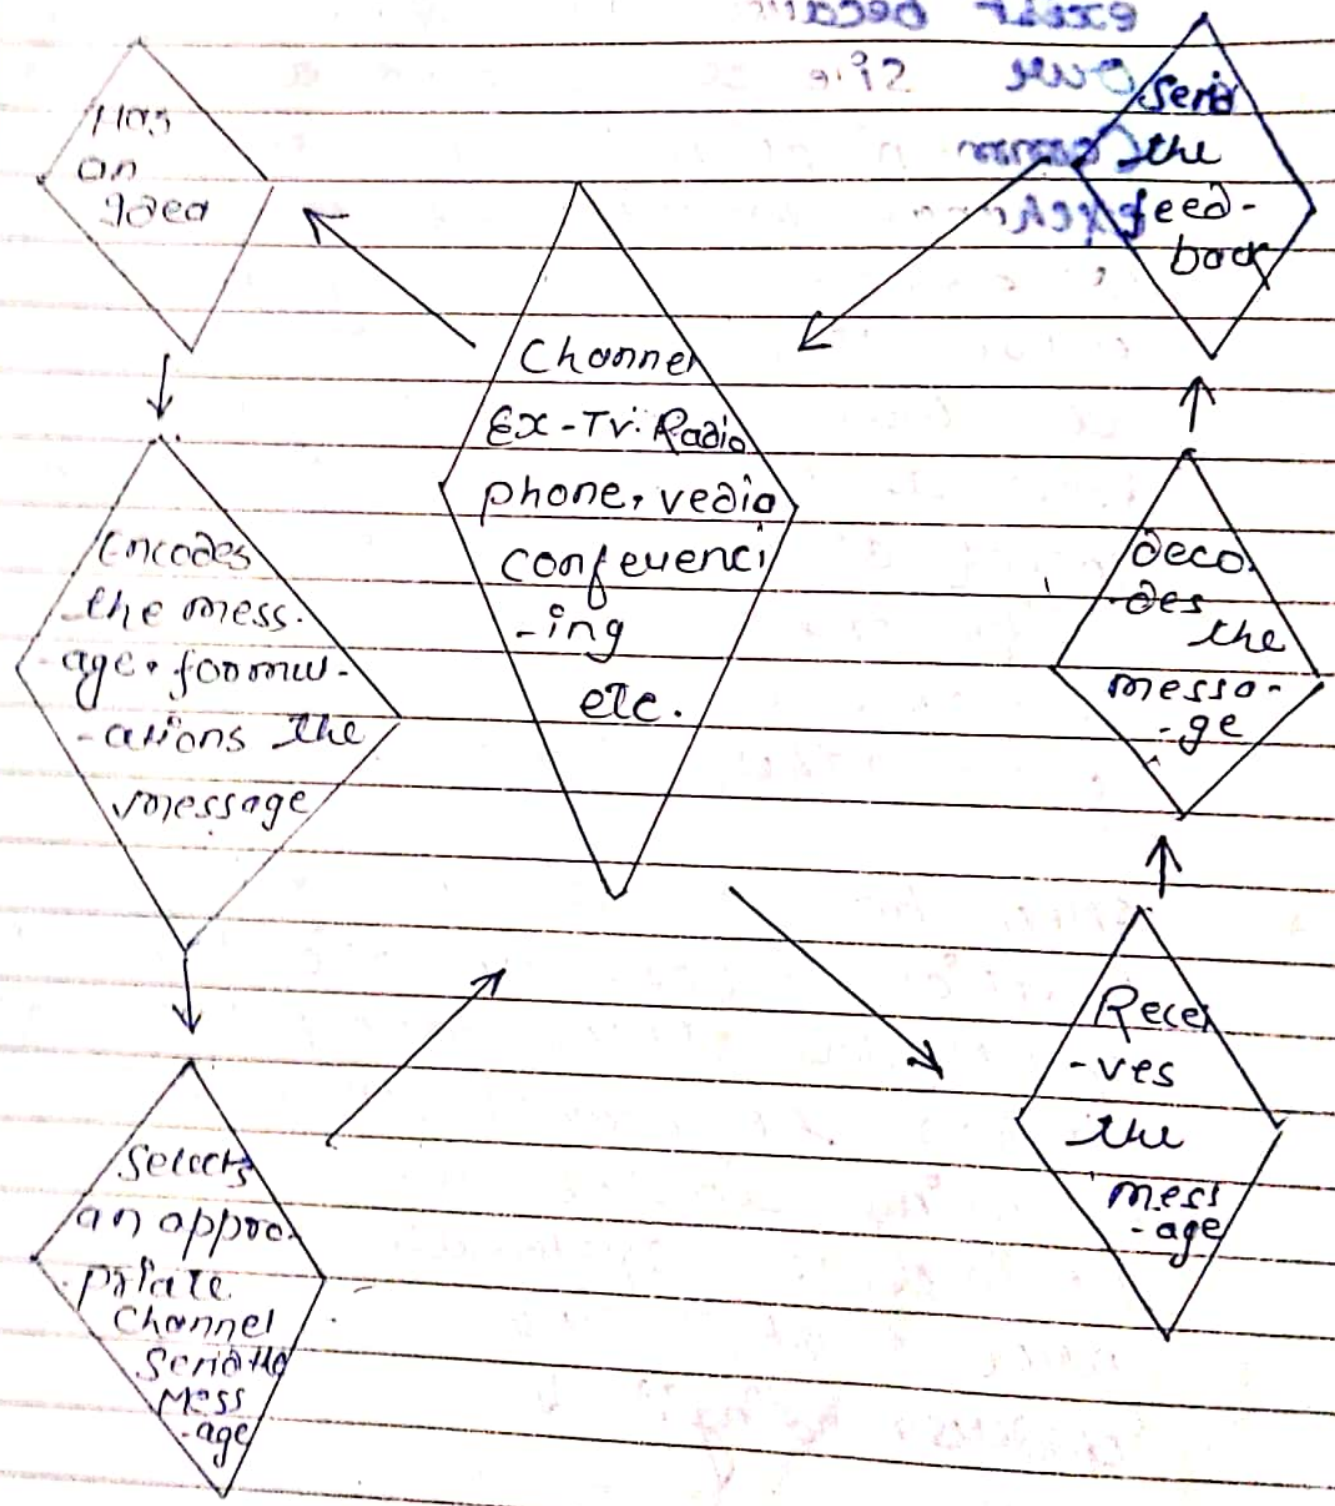 Has
an
Idea
Encodes
the mess-
age. formu-
-ations the
message
Selects
an appro-
priate
Channel
Send the
Mess
-age
Channel
Ex-Tv. Radio
phone, vedio
conferenci
-ing
etc.
Send
the
feed-
back
deco-
-des
the
messa-
-ge
Recei
-ves
the
mess
-age